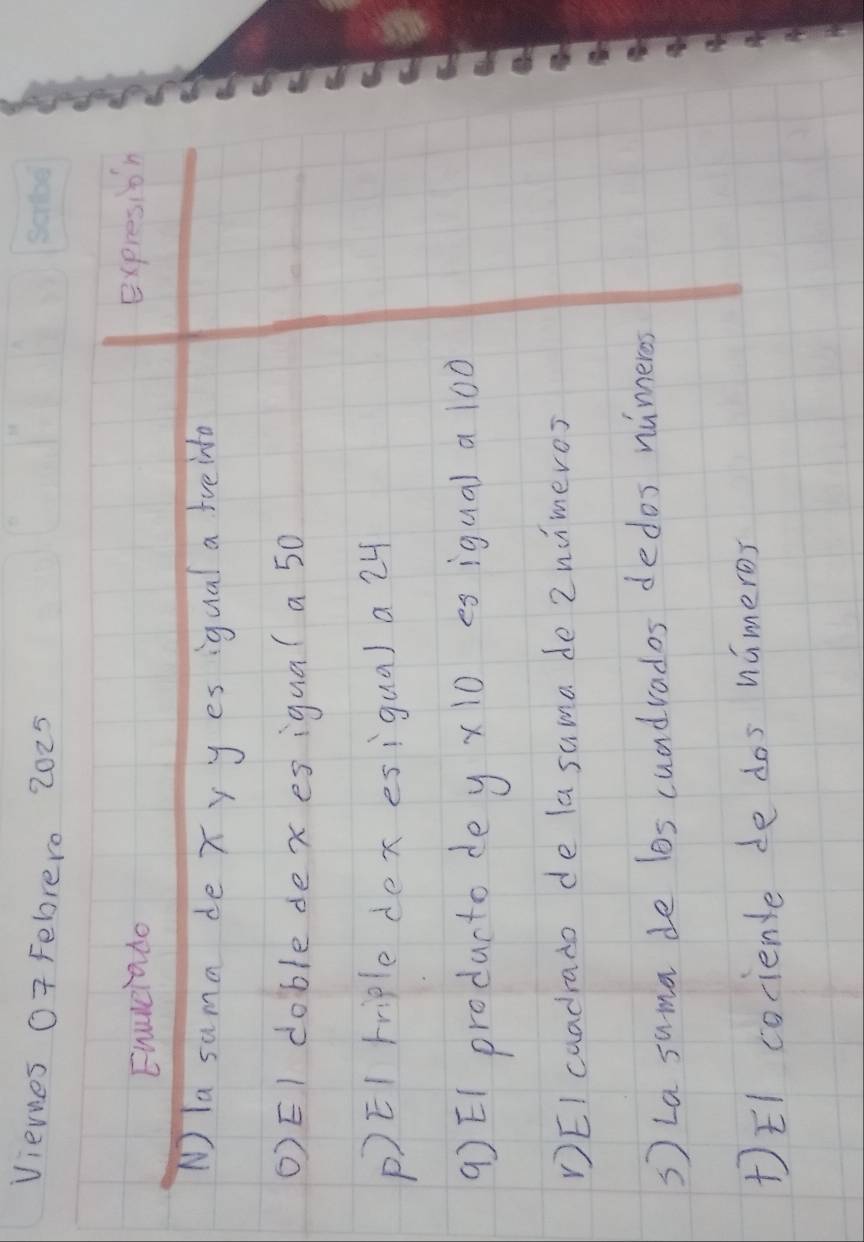 Scribe
Viernes 07 Febrero 2025
Enunciado Expresión
N) la suma de x y y es igual a treinto
O) El doble de x es igual a 50
P) El triple de x es igual a 24
q) El producto de y x10 es igual a 100
r) El cuadrado de la suma de 2 números
s) La suma de los cuadrados de dos números
t) El cociente de dos números